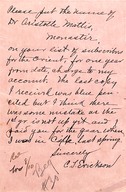 Please put the name of
Dr Aristotle Mottes,
Monastir,
on your list of subscribers
for the Orient, for one year
from date, charge to my
account. The last copy
I received was blue pen-
ciled but I think there
was some mistake as the
sub is not up yet and I
paid you for the year when
I was in Cple last spring
Sincerely
C. T. Erickson